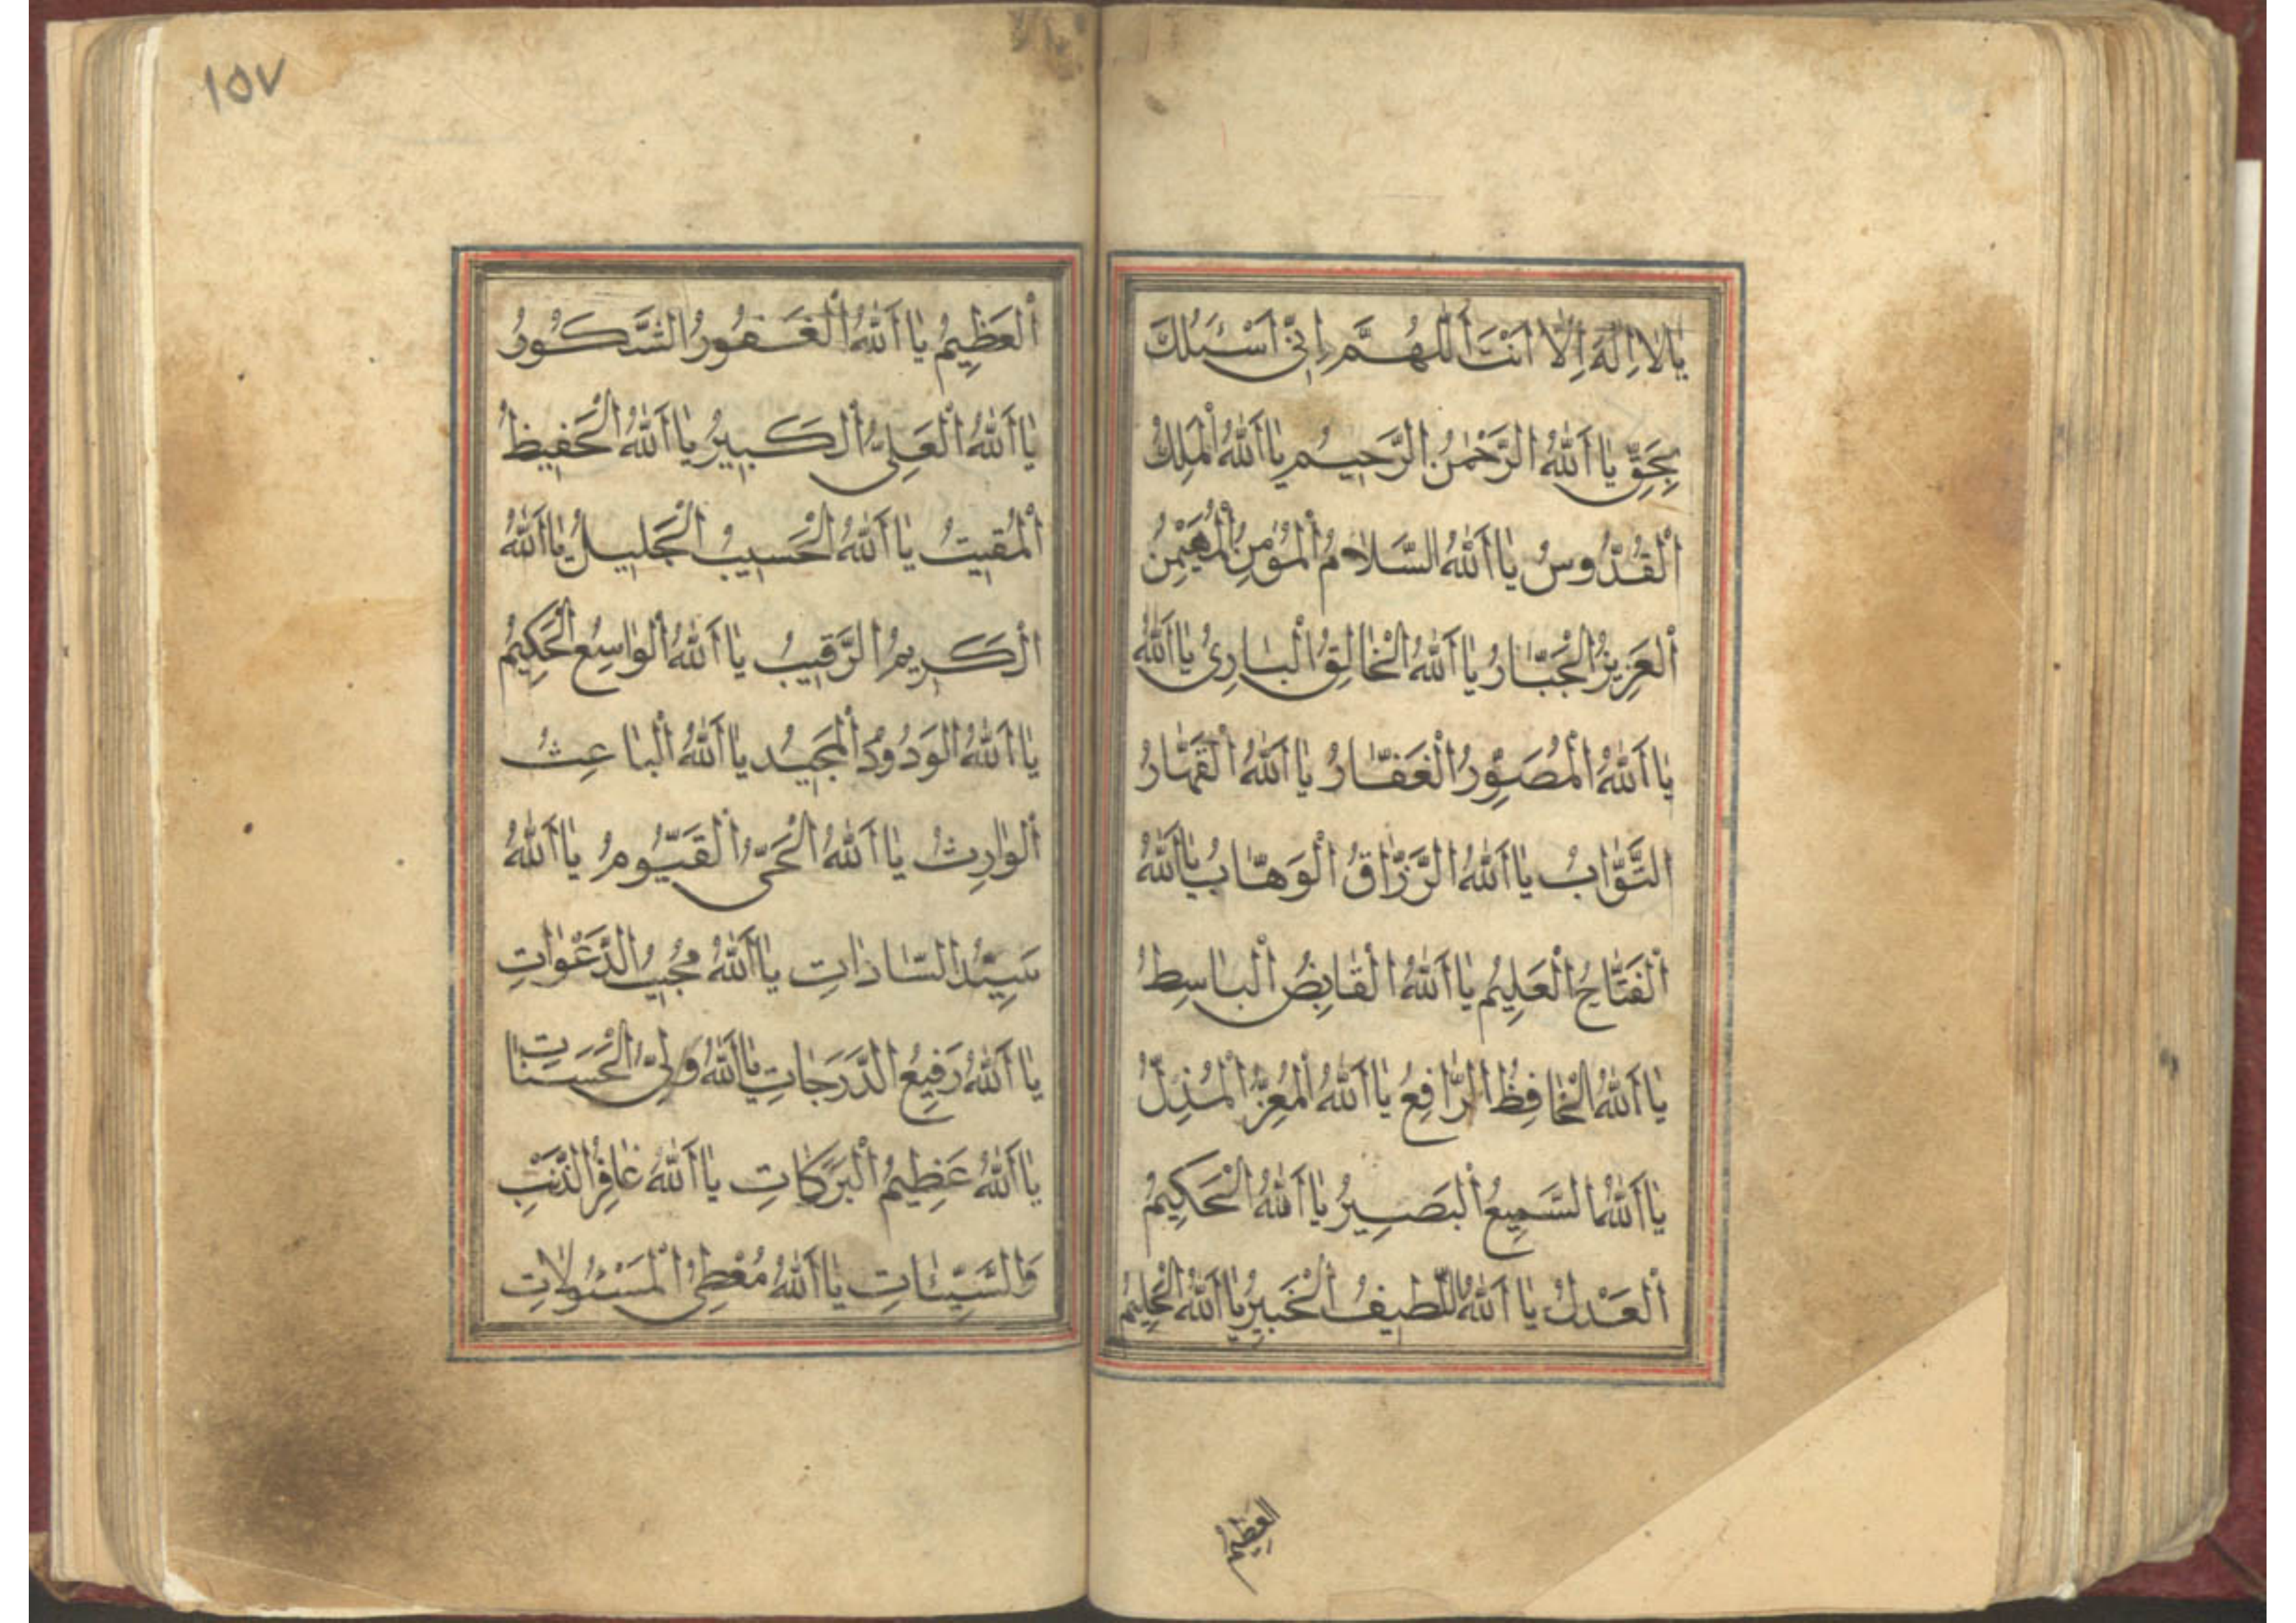 يَا لَا اِلٰهَ اِلَّا اَنْتَ اَللّٰهُمَّ اِنّٖى اَسْئَلُكَ
بِحَقِّ يَا اَللّٰهُ الرَّحْمٰنُ الرَّحٖيمُ يَا اَللّٰهُ الْمَلِكُ
اَلْقُدُّوسُ يَا اَللّٰهُ السَّلَامُ اَلْمُؤْمِنُ اَلْمُهَيْمِنُ
اَلْعَزِيزُ الْجَبَّارُ يَا اَللّٰهُ الْخَالِقُ الْبَارِئُ يَا اَللّٰهُ
يَا اَللّٰهُ الْمُصَوِّرُ الْغَفَّارُ يَا اَللّٰهُ الْقَهَّارُ
التَّوَّابُ يَا اَللّٰهُ الرَّزَّاقُ الْوَهَّابُ يَا اَللّٰهُ
اَلْفَتَّاحُ الْعَلِيمُ يَا اَللّٰهُ الْقَابِضُ الْبَاسِطُ
يَا اَللّٰهُ الْخَافِظُ الرَّافِعُ يَا اَللّٰهُ الْمُعِزُّ الْمُذِلُّ
يَا اَللّٰهُ السَّمِيعُ الْبَصِيرُ يَا اَللّٰهُ الْحَكِيمُ
اَلْعَدْلُ يَا اَللّٰهُ اللَّطِيفُ الْخَبِيرُ يَا اَللّٰهُ الْحَلِيمُ
العظيم
١٥٧
اَلْعَظِيمُ يَا اَللّٰهُ الْغَفُورُ الشَّكُورُ
يَا اَللّٰهُ الْعَلِىُّ الْكَبِيرُ يَا اَللّٰهُ الْحَفِيظُ
اَلْمُقِيتُ يَا اَللّٰهُ الْحَسِيبُ الْجَلِيلُ يَا اَللّٰهُ
اَلْكَرِيمُ الرَّقِيبُ يَا اَللّٰهُ الْوَاسِعُ الْحَكِيمُ
يَا اَللّٰهُ الْوَدُودُ الْمَجِيدُ يَا اَللّٰهُ الْبَاعِثُ
اَلْوَارِثُ يَا اَللّٰهُ الْحَىُّ الْقَيُّومُ يَا اَللّٰهُ
سَيِّدُ السَّادَاتِ يَا اَللّٰهُ مُجِيبُ الدَّعْوَاتِ
يَا اَللّٰهُ رَفِيعُ الدَّرَجَاتِ يَا اَللّٰهُ وَلِىُّ الْحَسَنَاتِ
يَا اَللّٰهُ عَظِيمُ الْبَرَكَاتِ يَا اَللّٰهُ غَافِرُ الذَّنْبِ
وَالسَّيِّئَاتِ يَا اَللّٰهُ مُعْطِى الْمَسْئُولَاتِ